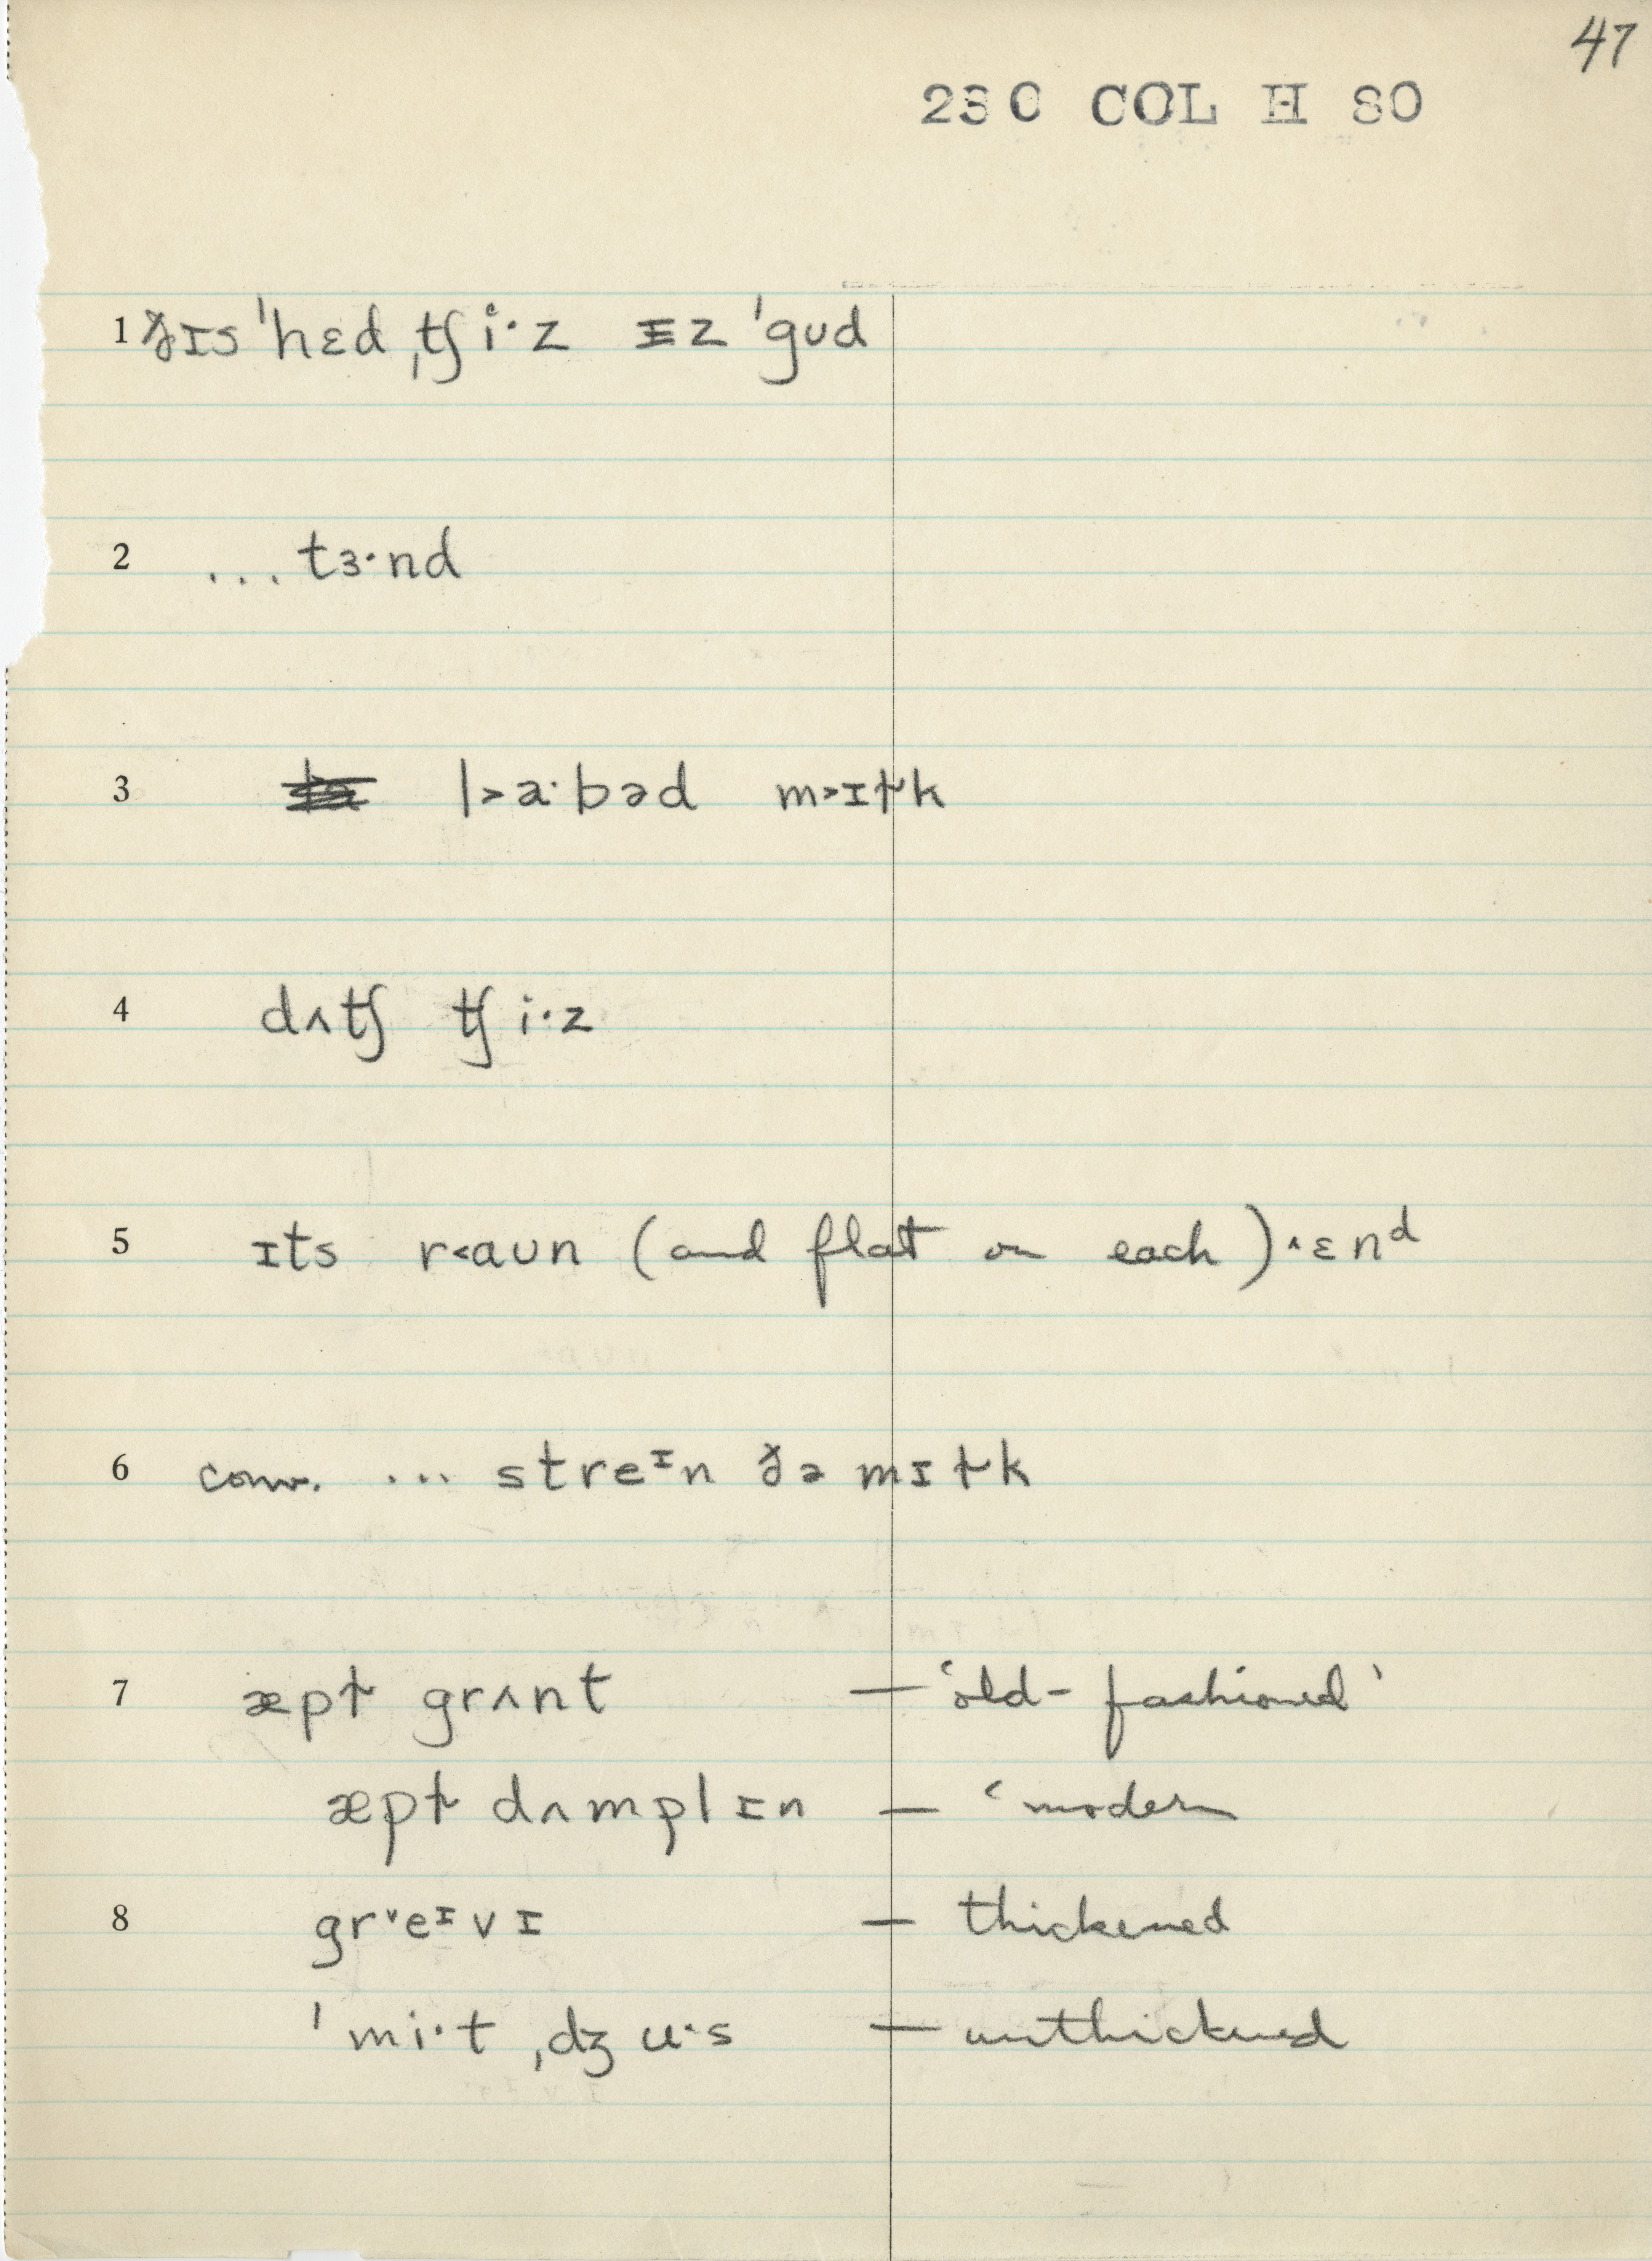 47
230 COL H 80
1 ðɪs ˈhɛd ˌtʃi·z ɪz ˈgʊd
2 ... tɜ·nd
3 l>a·bəd m>ɪɫk
4 dʌtʃ tʃi·z
5 ɪts r<aʊn (and flat on each) ^ɛnᵈ
6 conv. ... streᶦn ðə mɪɫk
7 æpɫ grʌnt — 'old-fashioned'
æpɫ dʌmplɪn — 'modern
8 grˇeᶦvɪ — thickened
ˈmi·t ˌdʒu·s — unthickened